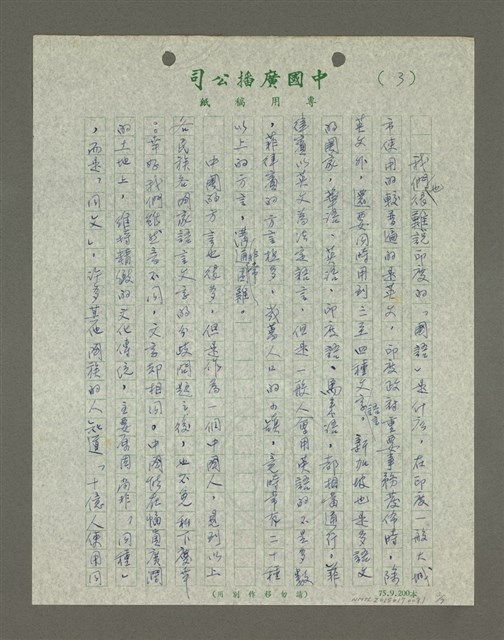 中國廣播公司
專用稿紙
(3)
我們也很難說印度的「國語」是什麼,在印度一般大城
市使用的較普遍的是英文,印度政府重要事務發佈時,除
英文外,還要同時用到三至四種文字。新加坡也是多語文
的國家,華語、英語、印度語、馬來語,都相當通行,菲
律賓以英文為法定語言,但是一般人會用英語的不是多數
,菲律賓的方言極多,幾萬人口的小鎮,竟時常有二十種
以上的方言,溝通非常困難。
中國的方言也很多,但是作為一個中國人,見到以上
各民族各國家語言文字的分歧問題之後,也不免私下慶幸
:幸好我們雖然語音不同,文字卻相同。中國能在幅員廣闊
的土地上,維持精緻的文化傳統,主要原因尚非「同種」
,而是「同文」,許多其他國籍的人知道「十億人使用同
(請勿移作別用)
75.9.200本